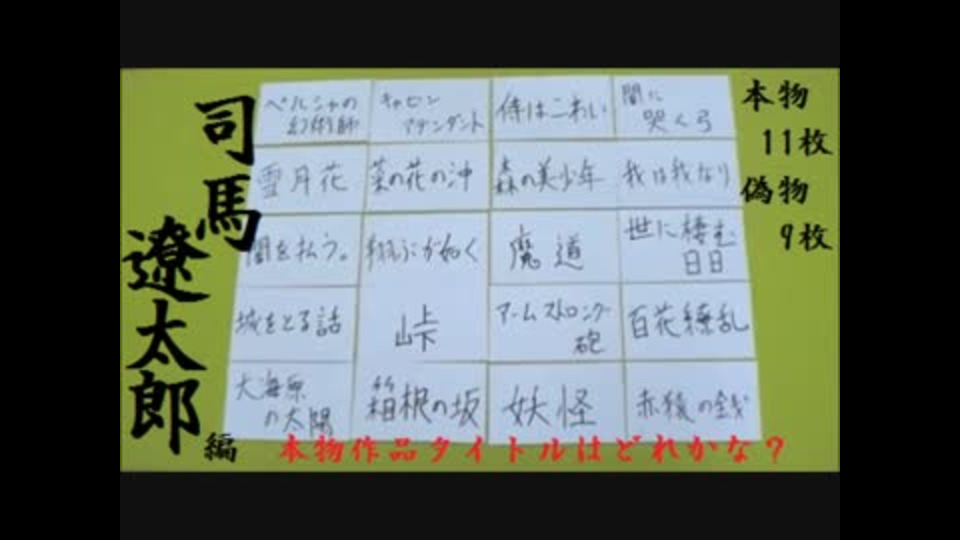 司馬
遼太郎
編
ペルシャの
幻術師
キャビン
アテンダント
侍はこわい
闇に
哭く弓
雪月花
菜の花の沖
森の美少年
我は我なり
闇を払う。
翔ぶが如く
魔道
世に棲む
日日
城をとる話
峠
アームストロング
砲
百花繚乱
大海原
の太陽
箱根の坂
妖怪
赤猿の銭
本物
11枚
偽物
9枚
本物作品タイトルはどれかな?